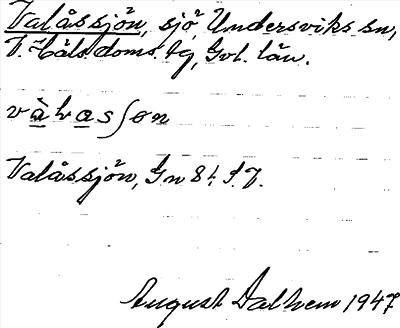 Valåssjön, sjö, Undersviks sn,
V. Häls. doms. tg, Gvl. län.
vàlvasʃөn
Valåssjön, Gn 8 t. S. J.
August Dalhem 1947